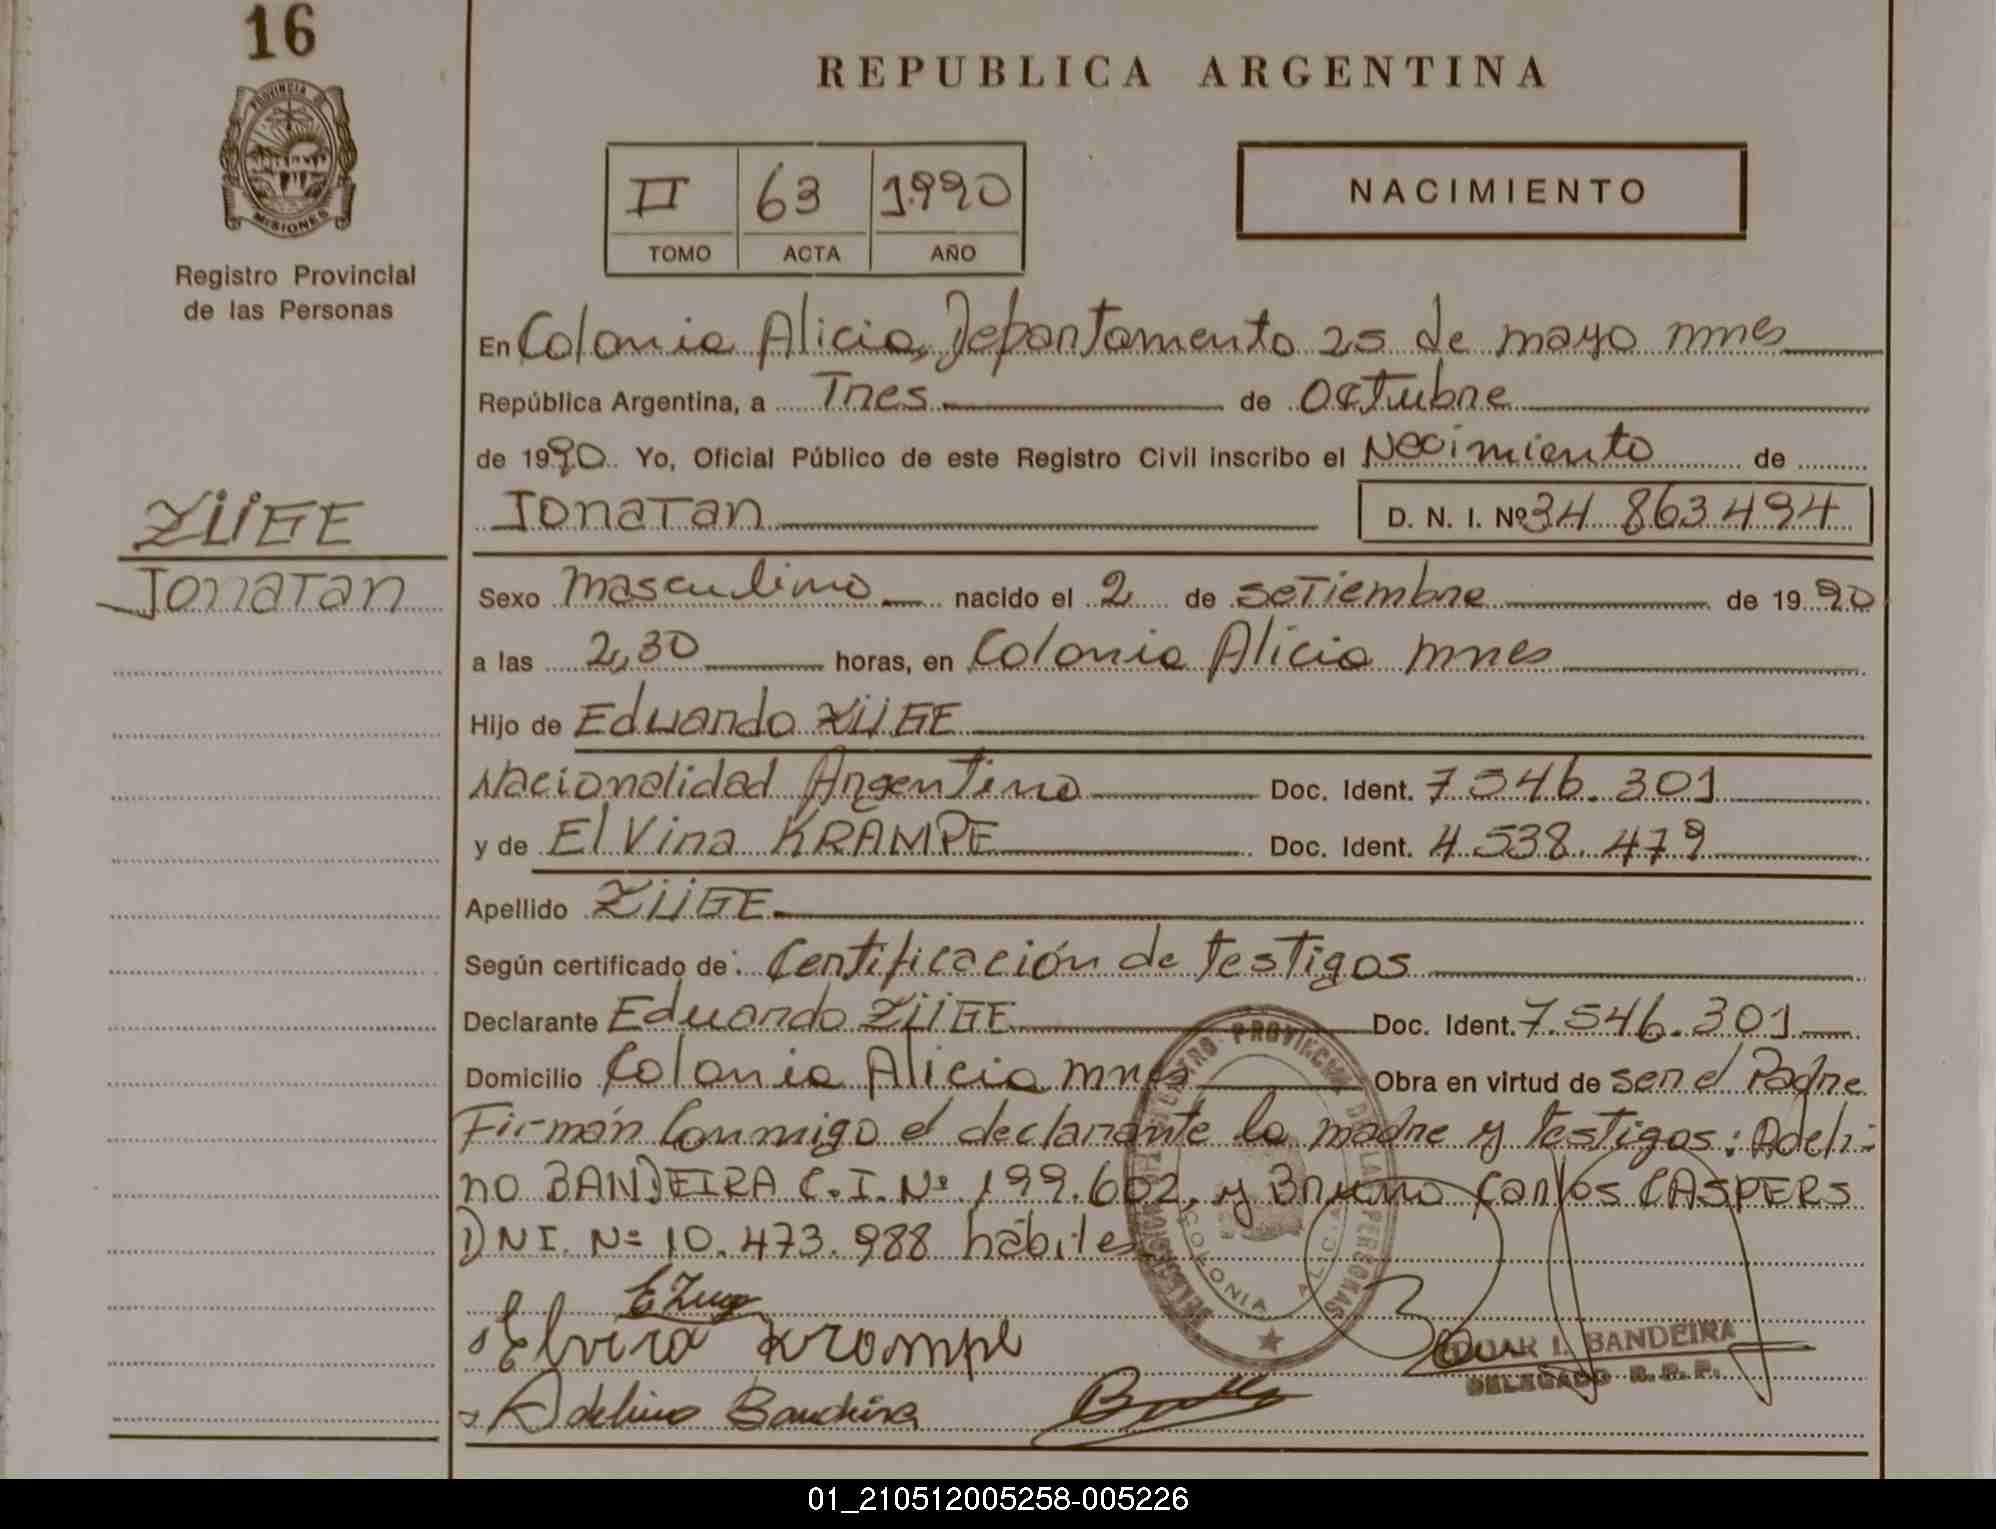 16
PROVINCIA D
MISIONES
Registro Provincial
de las Personas
REPUBLICA ARGENTINA
II 63 1990
TOMO ACTA AÑO
NACIMIENTO
En Colonia Alicia, Departamento 25 de mayo mnes
República Argentina, a Tres de Octubre
de 1990. Yo, Oficial Público de este Registro Civil inscribo el Nacimiento de
Jonatan D. N. I. Nº 34 863.494
ZÜGE
Jonatan
Sexo masculino nacido el 2 de setiembre de 1990
a las 2,30 horas, en Colonia Alicia mnes
Hijo de Eduardo ZÜGE
Nacionalidad Argentino Doc. Ident. 7.546.301
y de ElVina KRAMPE Doc. Ident. 4.538.479
Apellido ZÜGE
Según certificado de: Certificación de testigos
Declarante Eduardo ZÜGE Doc. Ident. 7.546.301
Domicilio Colonia Alicia mnes Obra en virtud de ser el Padre
Firmán Conmigo el declarante la madre y testigos: Adeli-
no BANDEIRA C.I. Nº 199.602, y Bruno Carlos CASPERS
DNI. Nº 10.473.988 hábiles
REGISTRO PROVINCIAL DE LAS PERSONAS
COLONIA ALICIA
EZuge
Elvira Krampe
I. BANDEIRA
DELEGADO R. P. P.
Adelino Bandeira
01_210512005258-005226